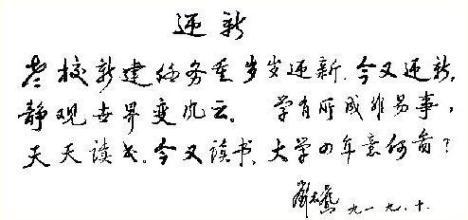 迎新
老校新建任务重岁岁迎新.今又迎新,
静观世界变风云. 学有所成非易事,
天天读书.今又读书,大学四年意何啻?
九一.九.十.